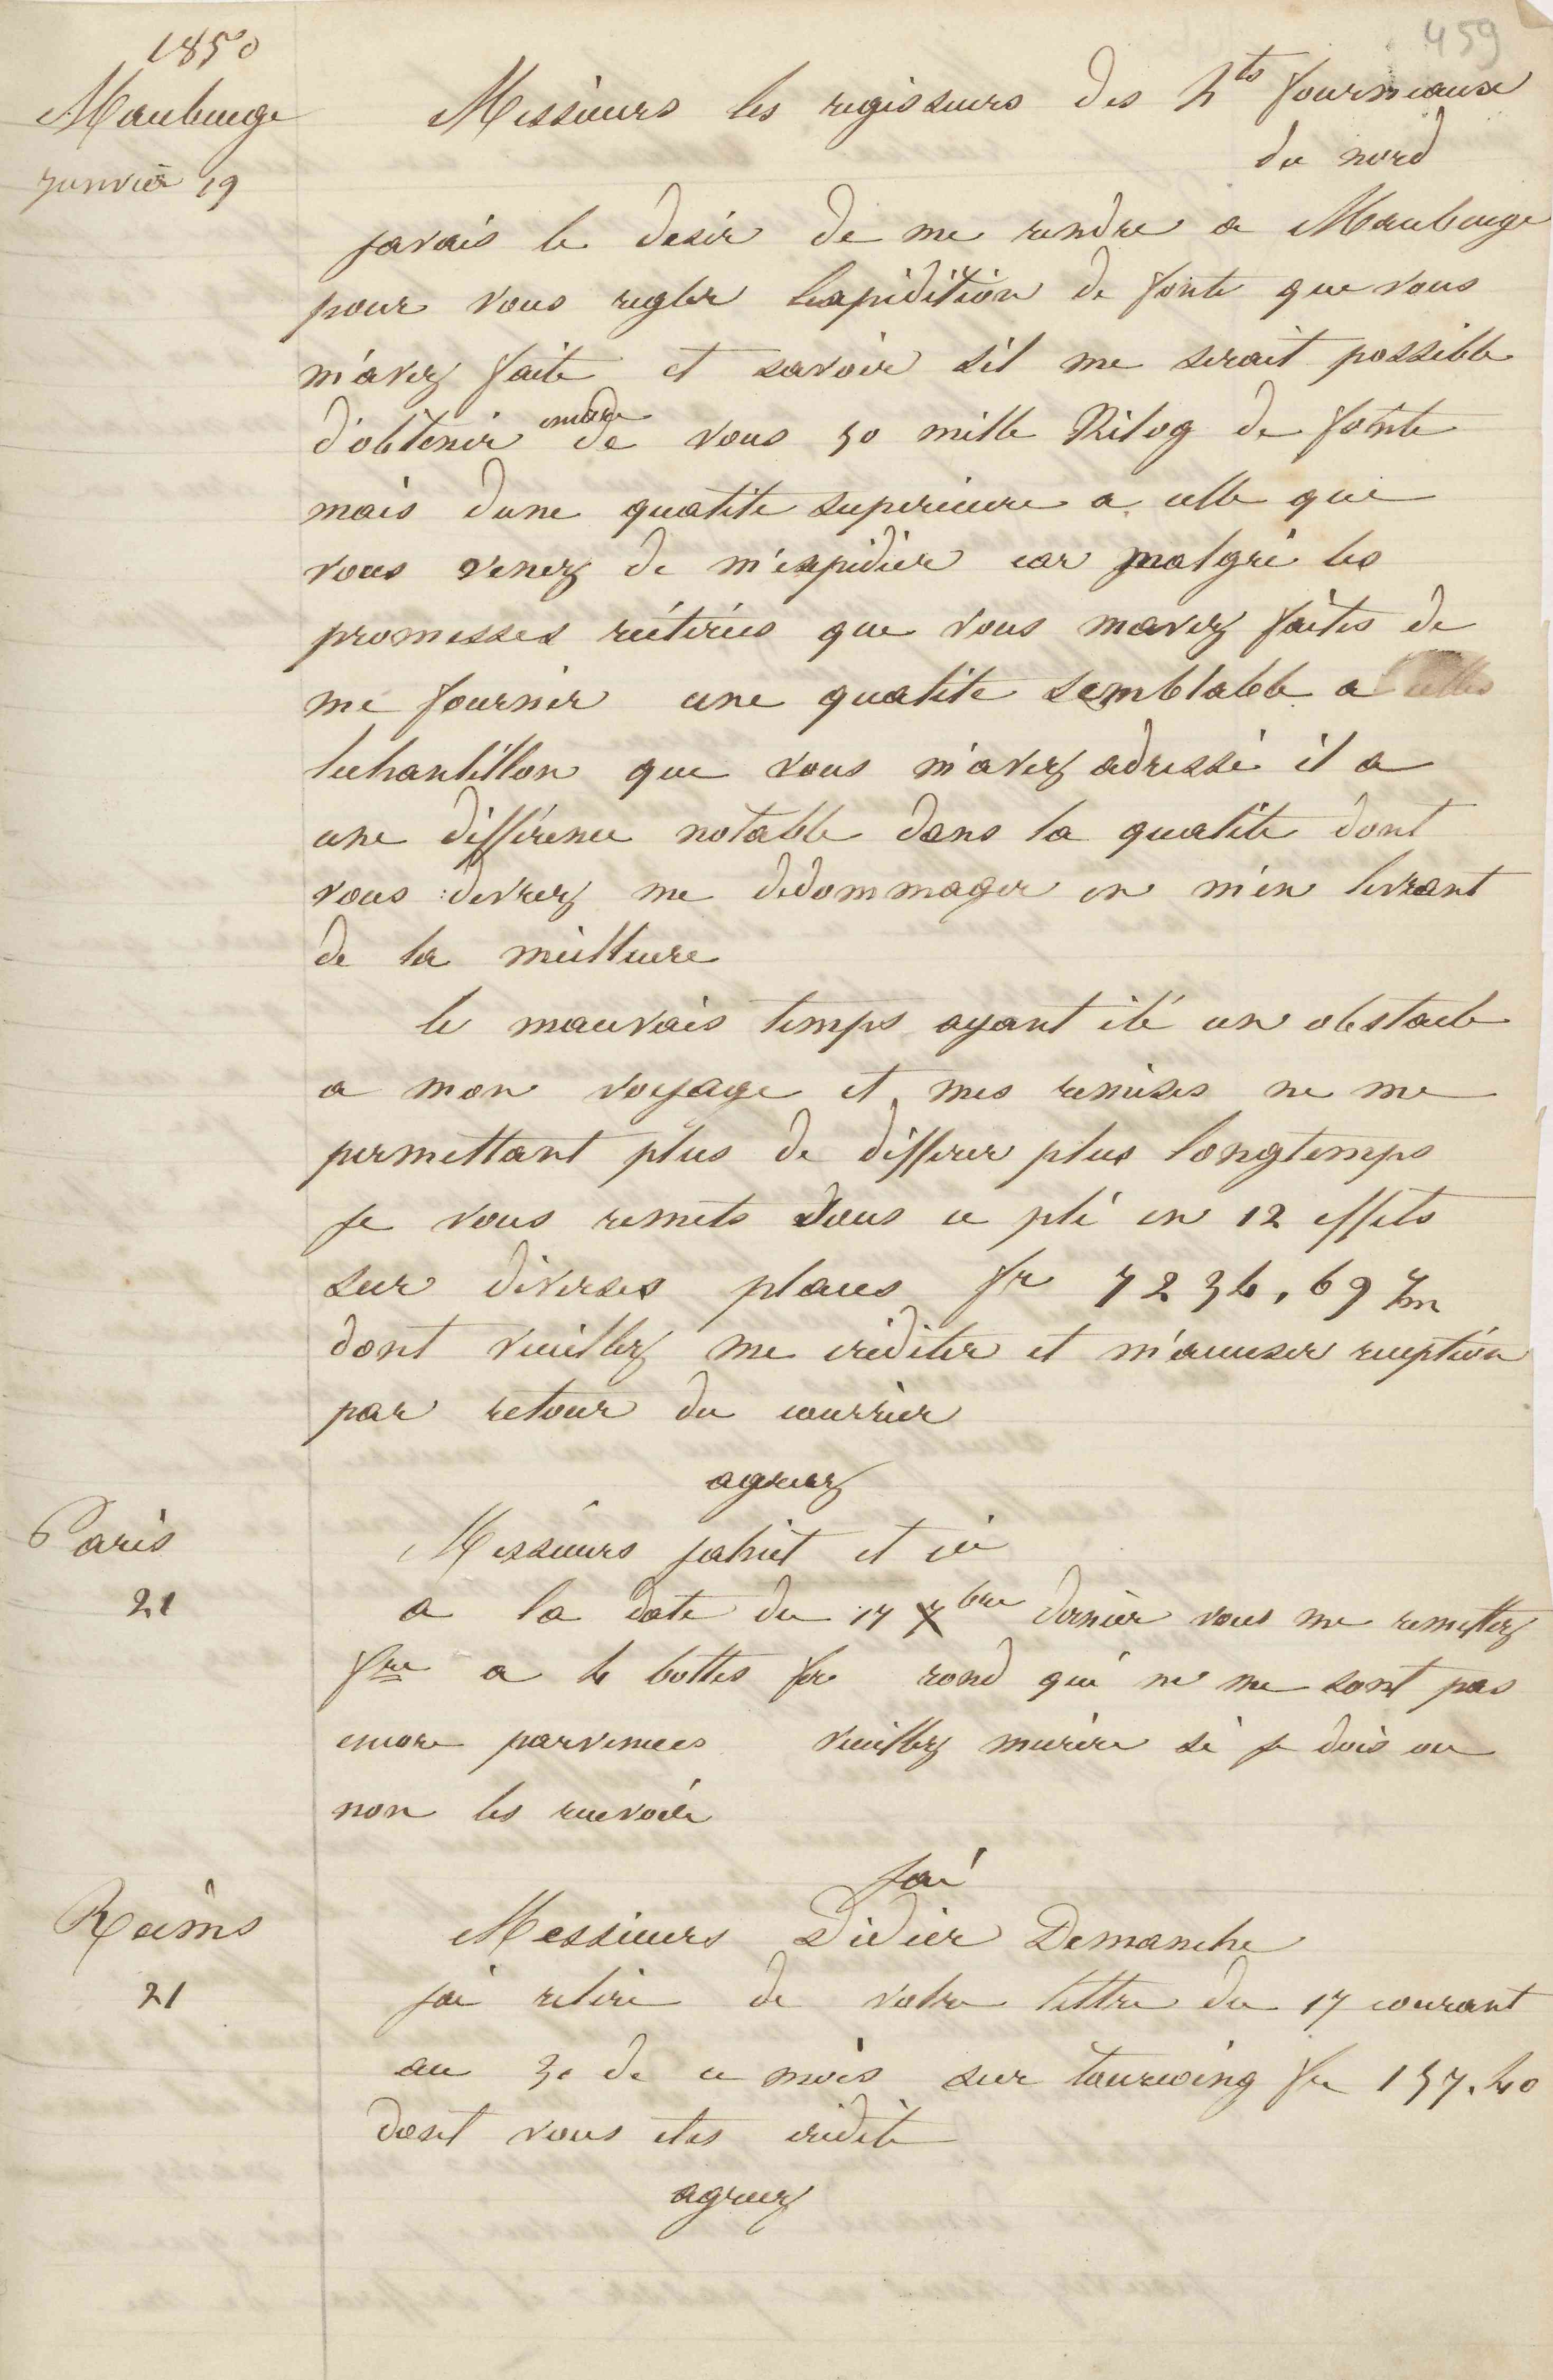 459
1850
Maubeuge
janvier 19
Messieurs les regisseurs des hts fourneaux
du nord
javais le desir de me rendre a Maubeuge
pour vous regler lexpidition de fonte que vous
m'avez faite et savoir s'il me serait possible
d'obtenir encore de vous 50 mille Kilog de fonte
mais dune qualite superieure a celle que
vous venez de m'expidier car malgré les
promesses réitérées que vous mavez faites de
me fournir une qualite semblable a
lechantillon que vous m'avez adressé il a
une différence notable dans la qualite dont
vous devrez me dedommager en m'en livrant
de la meilleure
le mauvais temps ayant été un obstacle
a mon voyage et mes remises ne me
permettant plus de differer plus longtemps
je vous remets sous ce pli en 12 effets
sur diverses places fr 7234,69
dont veuillez me créditer et m'accuser reception
par retour du courrier
agreez
Paris
21
Messieurs jahiet et cie
a la date du 17 Xbre dernier vous me remettez
fre a 4 bottes fer rond qui ne me sont pas
encore parvenues veuillez mecrire si je dois ou
non les recevoir
jai
Reims
21
Messieurs Didier Demanche
jai retiré de votre lettre du 17 courant
au 30 de ce mois sur tourcoing fr 157.40
dont vous etes crédité
agreez